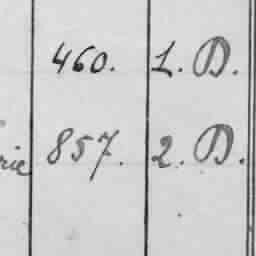 460. 1. D.
rie 857. 2. D.